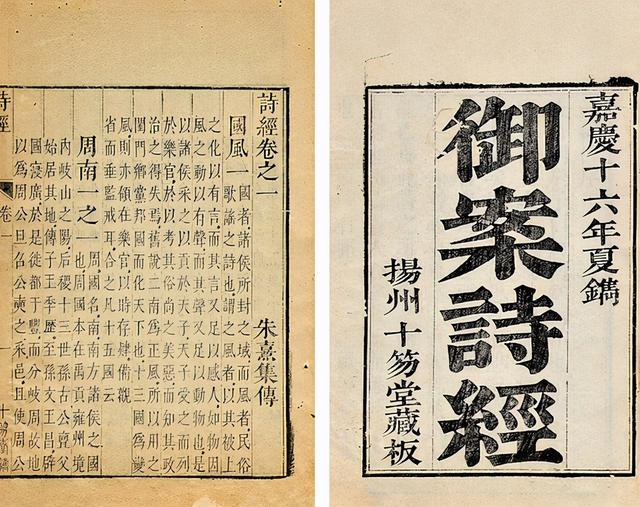 嘉慶十六年夏鐫
御案詩經
揚州十笏堂藏板
詩經卷之一
朱熹集傳
國風一
國者諸侯所封之域而風者民俗
歌謠之詩也謂之風者以其被上
之化以有言而其言又足以感人如物因
風之動以有聲而其聲又足以動物也是
以諸侯采之以貢於天子天子受之而列
於樂官於以考其俗尚之美惡而知其政
治之得失焉舊說二南為正風所以用之
閨門鄉黨邦國而化天下也十三國為變
風則亦領在樂官以時存肄備觀
省而垂監戒耳合之凡十五國云
周南一之一
周國名南南方諸侯之國
也周國本在禹貢雍州境
內岐山之陽后稷十三世孫古公亶父
始居其地傳子王季歷至孫文王昌辟
國寖廣於是徙都于豐而分岐周故地
以為周公旦召公奭之采邑且使周公
詩經
卷一
一